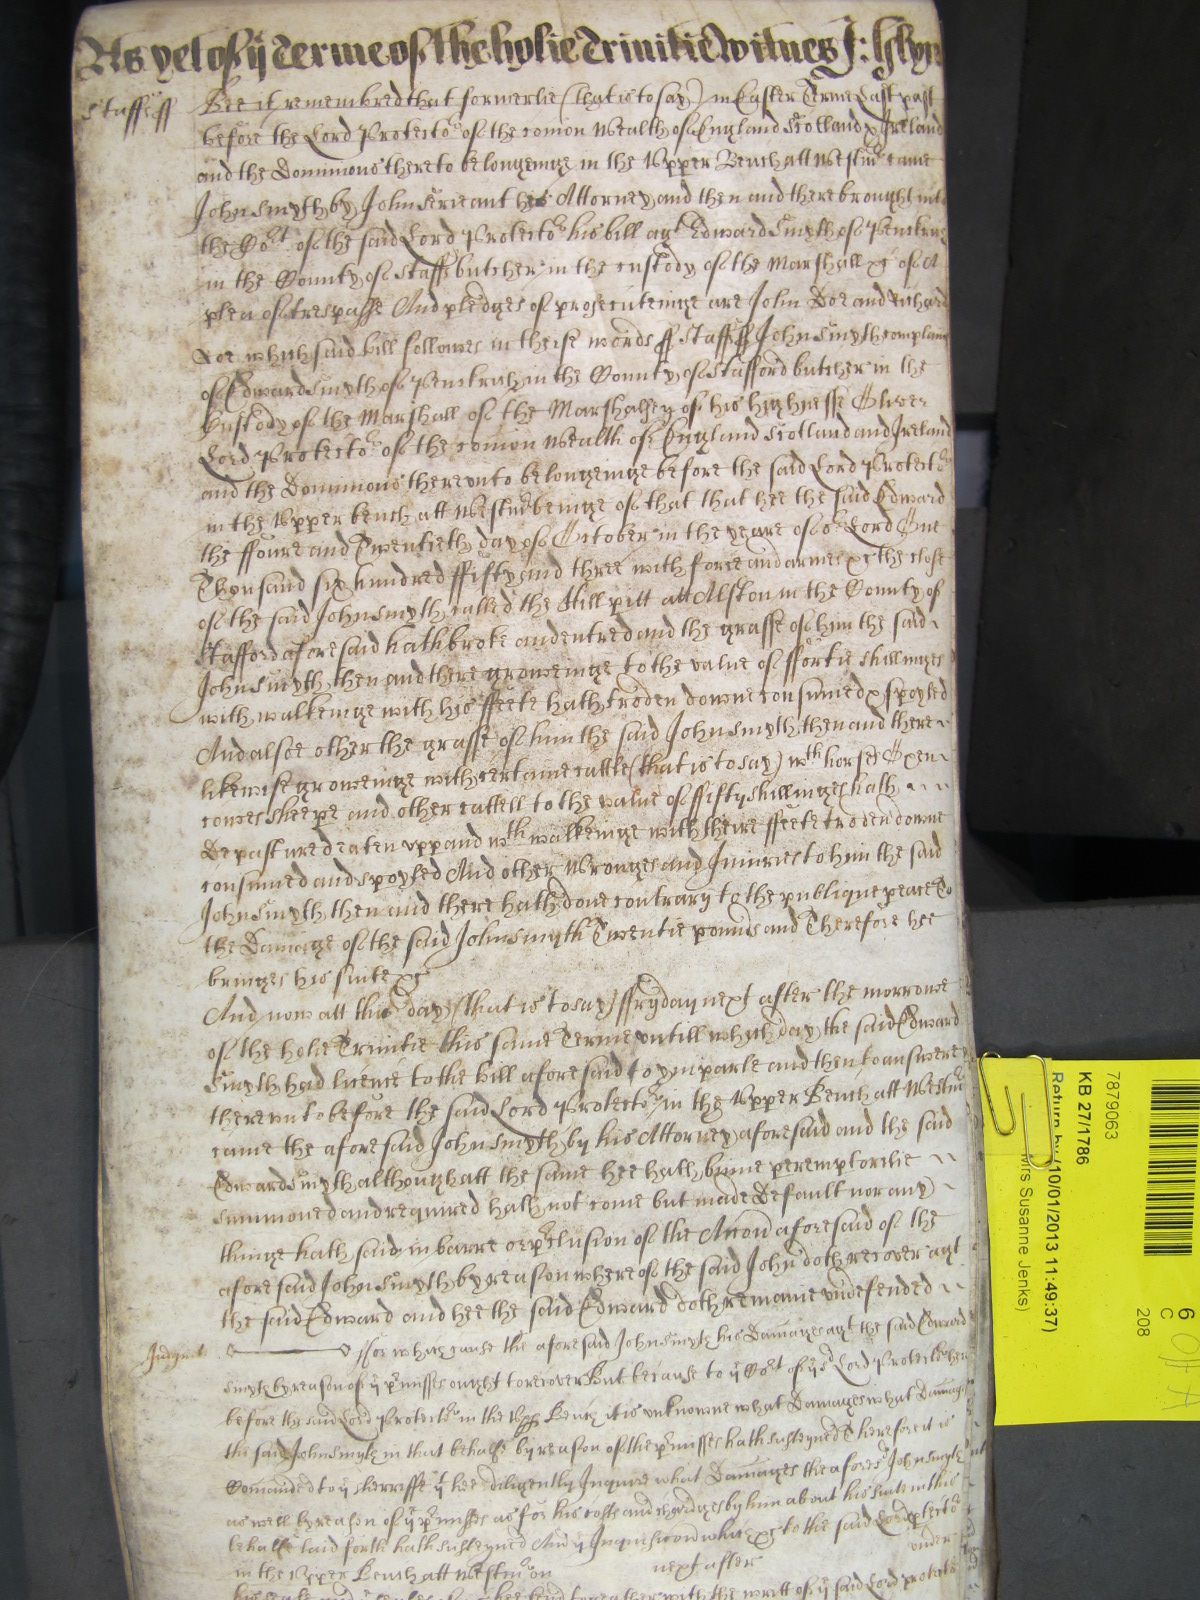 As yet of ye Terme of the holie Trinitie witnes J: Glyn
Staff ff Bee it remembred that formerlie (that is to say) in Easter Terme Last past
before the Lord Protector of the comon Wealth of England Scotland & Ireland
and the Dominions thereto belongeinge in the Upper Bench att Westmr came
John Smyth by John Serieant his Attorney and then and there brought into
the Cort of the said Lord Protector his bill agt Edward Smyth of Penkrich
in the County of Staff butcher in the custody of the Marshall &c of A
plea of trespasse And pledges of prosecuteinge are John Doe and Richard
Roe which said bill followes in theise words ff Staff ff John Smyth complaines
of Edward Smyth of Penkrich in the County of Stafford butcher in the
Custody of the Marshall of the Marshalsey of his highnesse Oliver
Lord Protector of the comon Wealth of England Scotland and Ireland
and the Dominions thereunto belongeinge before the said Lord Protector
in the Upper bench att Westmr beinge of that that hee the said Edward
the ffoure and Twentieth day of October in the yeare of or Lord One
Thousand six hundred ffifty and three with force and armes &c the close
of the said John Smyth called the pitt att Alston in the County of
Stafford aforesaid hath broke and entred and the grasse of him the said
John Smyth then and there groweinge to the value of ffortie shillinges
with walkeinge with his ffeete hath troden downe consumed & spoyled
And alsoe other the grasse of him the said John Smyth then and there
likewise groweinge with certaine cattle (that is to say) wth horses Oxen
cowes sheepe and other cattell to the value of ffifty shillinges hath
Depastured eaten upp and wth walkeinge with theire ffeete troden downe
consumed and spoyled And other Wronges and Iniuries to him the said
John Smyth then and there hath done contrary to the publique peace To
the Damage of the said John Smyth Twentie pounds and Therefore hee
bringes his suite &c
And now att this day (that is to say) ffryday next after the morrowe
of the holie Trinitie this same Terme untill which day the said Edward
Smyth had licence to the bill aforesaid to ymparle and then to answere
thereunto before the said Lord Protector in the Upper Bench att Westmr
came the aforesaid John Smyth by his Attorney aforesaid and the said
Edward Smyth although att the same hee hath binne peremptorilie
summoned and required hath not come but made Default nor any
thinge hath said in barre or pclusion of the Accon aforesaid of the
aforesaid John Smyth by reason whereof the said John doth recover agt
the said Edward and hee the said Edward doth remaine undefended
Judgmt ffor which cause the aforesaid John Smyth his Damages agt the said Edward
Smyth by reason of ye pmisses ought to recover But because to ye Cort of ye sd Lord Protector
before the said Lord Protector in the Upp Bench it is unknowne what Damages what Damages
the said John Smyth in that behalfe by reason of the pmisses hath susteyned therefore it is
Comanded to ye sherriffe yt hee diligently Inquire what Damages the aforesd John Smyth
as well by reason of ye pmisses as for his costs and chardges by him about his suite in this
behalfe laid forth hath susteyned And ye Inquisicon which &c to the said Lord ptector
in the Upper Bench att Westmr on next after under
his seale and hee send togeather with the writt of ye said Lord protector
7879063
KB 27/1786
Return by (10/01/2013 11:49:37)
Mrs Susanne Jenks)
6
C
208